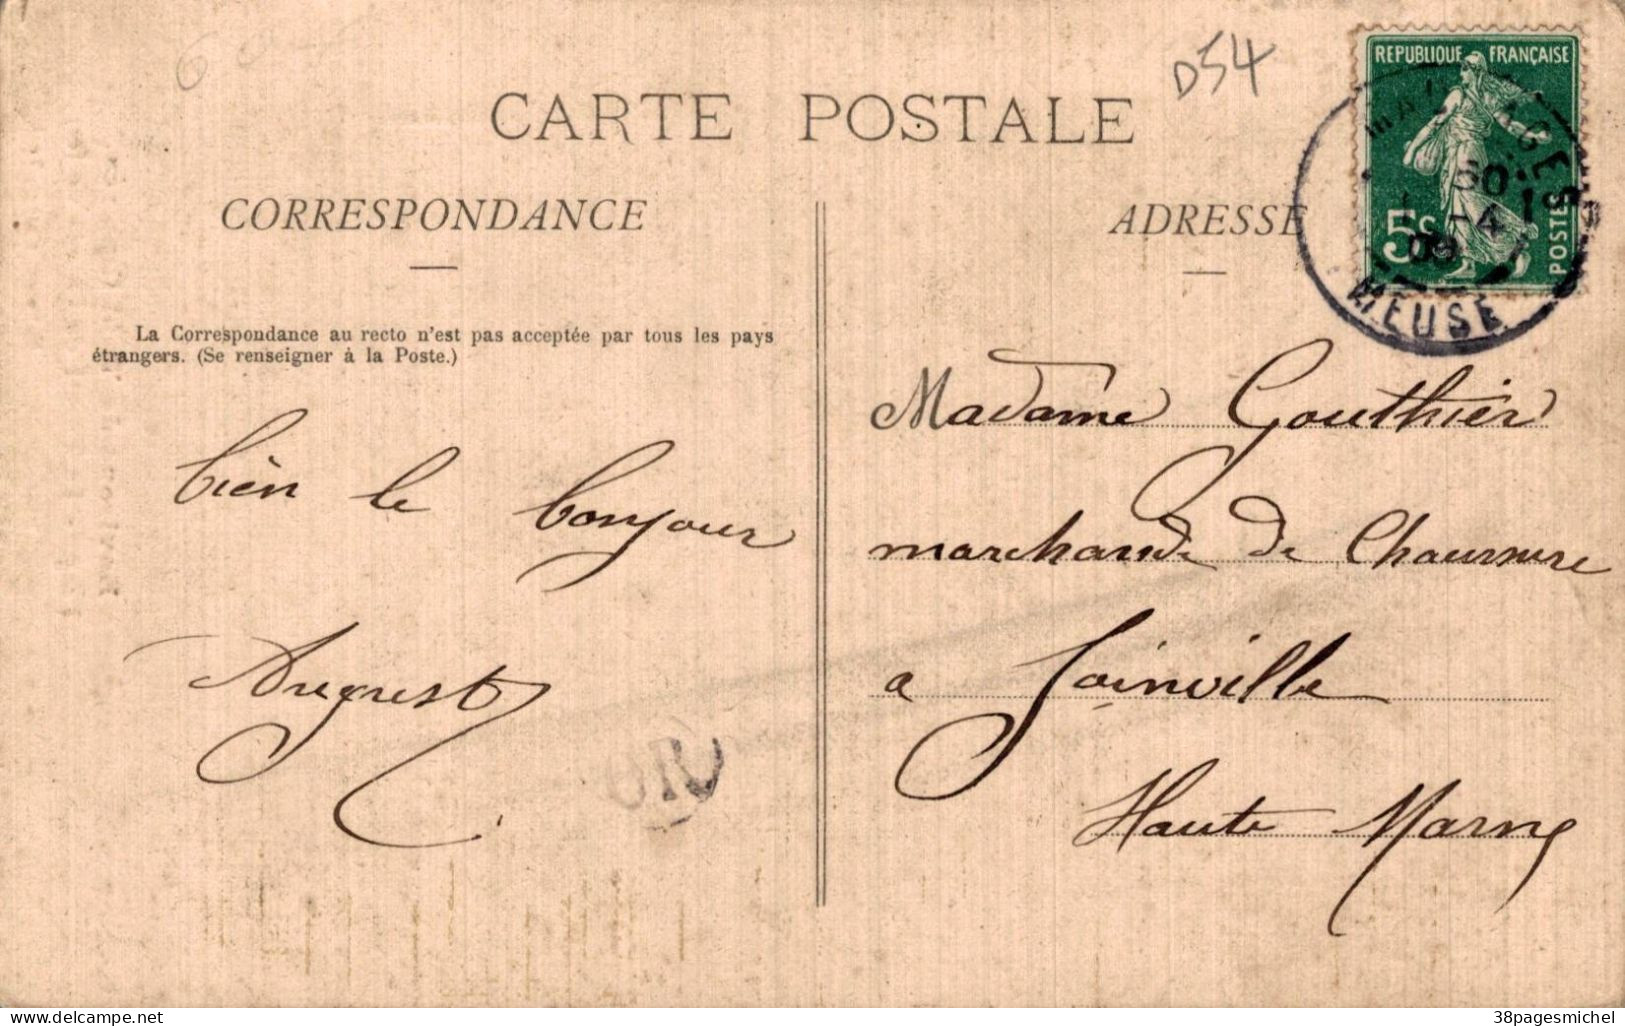 60
D54
CARTE POSTALE
REPUBLIQUE FRANÇAISE
5c
POSTES
MEUSE
CORRESPONDANCE
ADRESSE
La Correspondance au recto n'est pas acceptée par tous les pays
étrangers. (Se renseigner à la Poste.)
bien le bonjour
August
OR
Madame Gouthier
marchande de Chaussure
a Joinville
Haute Marne
Delcampe.net
38pagesmichel